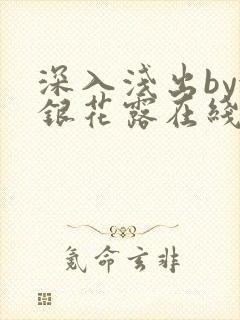 深入浅出by
銀花露在綫
氪命玄非